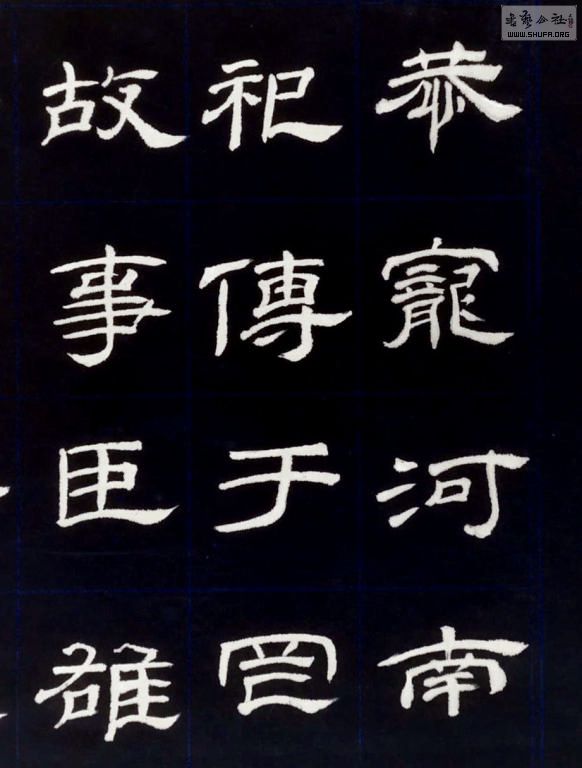 恭寵河南
祀傳于罔
故事臣雄
书艺公社
WWW.SHUFA.ORG